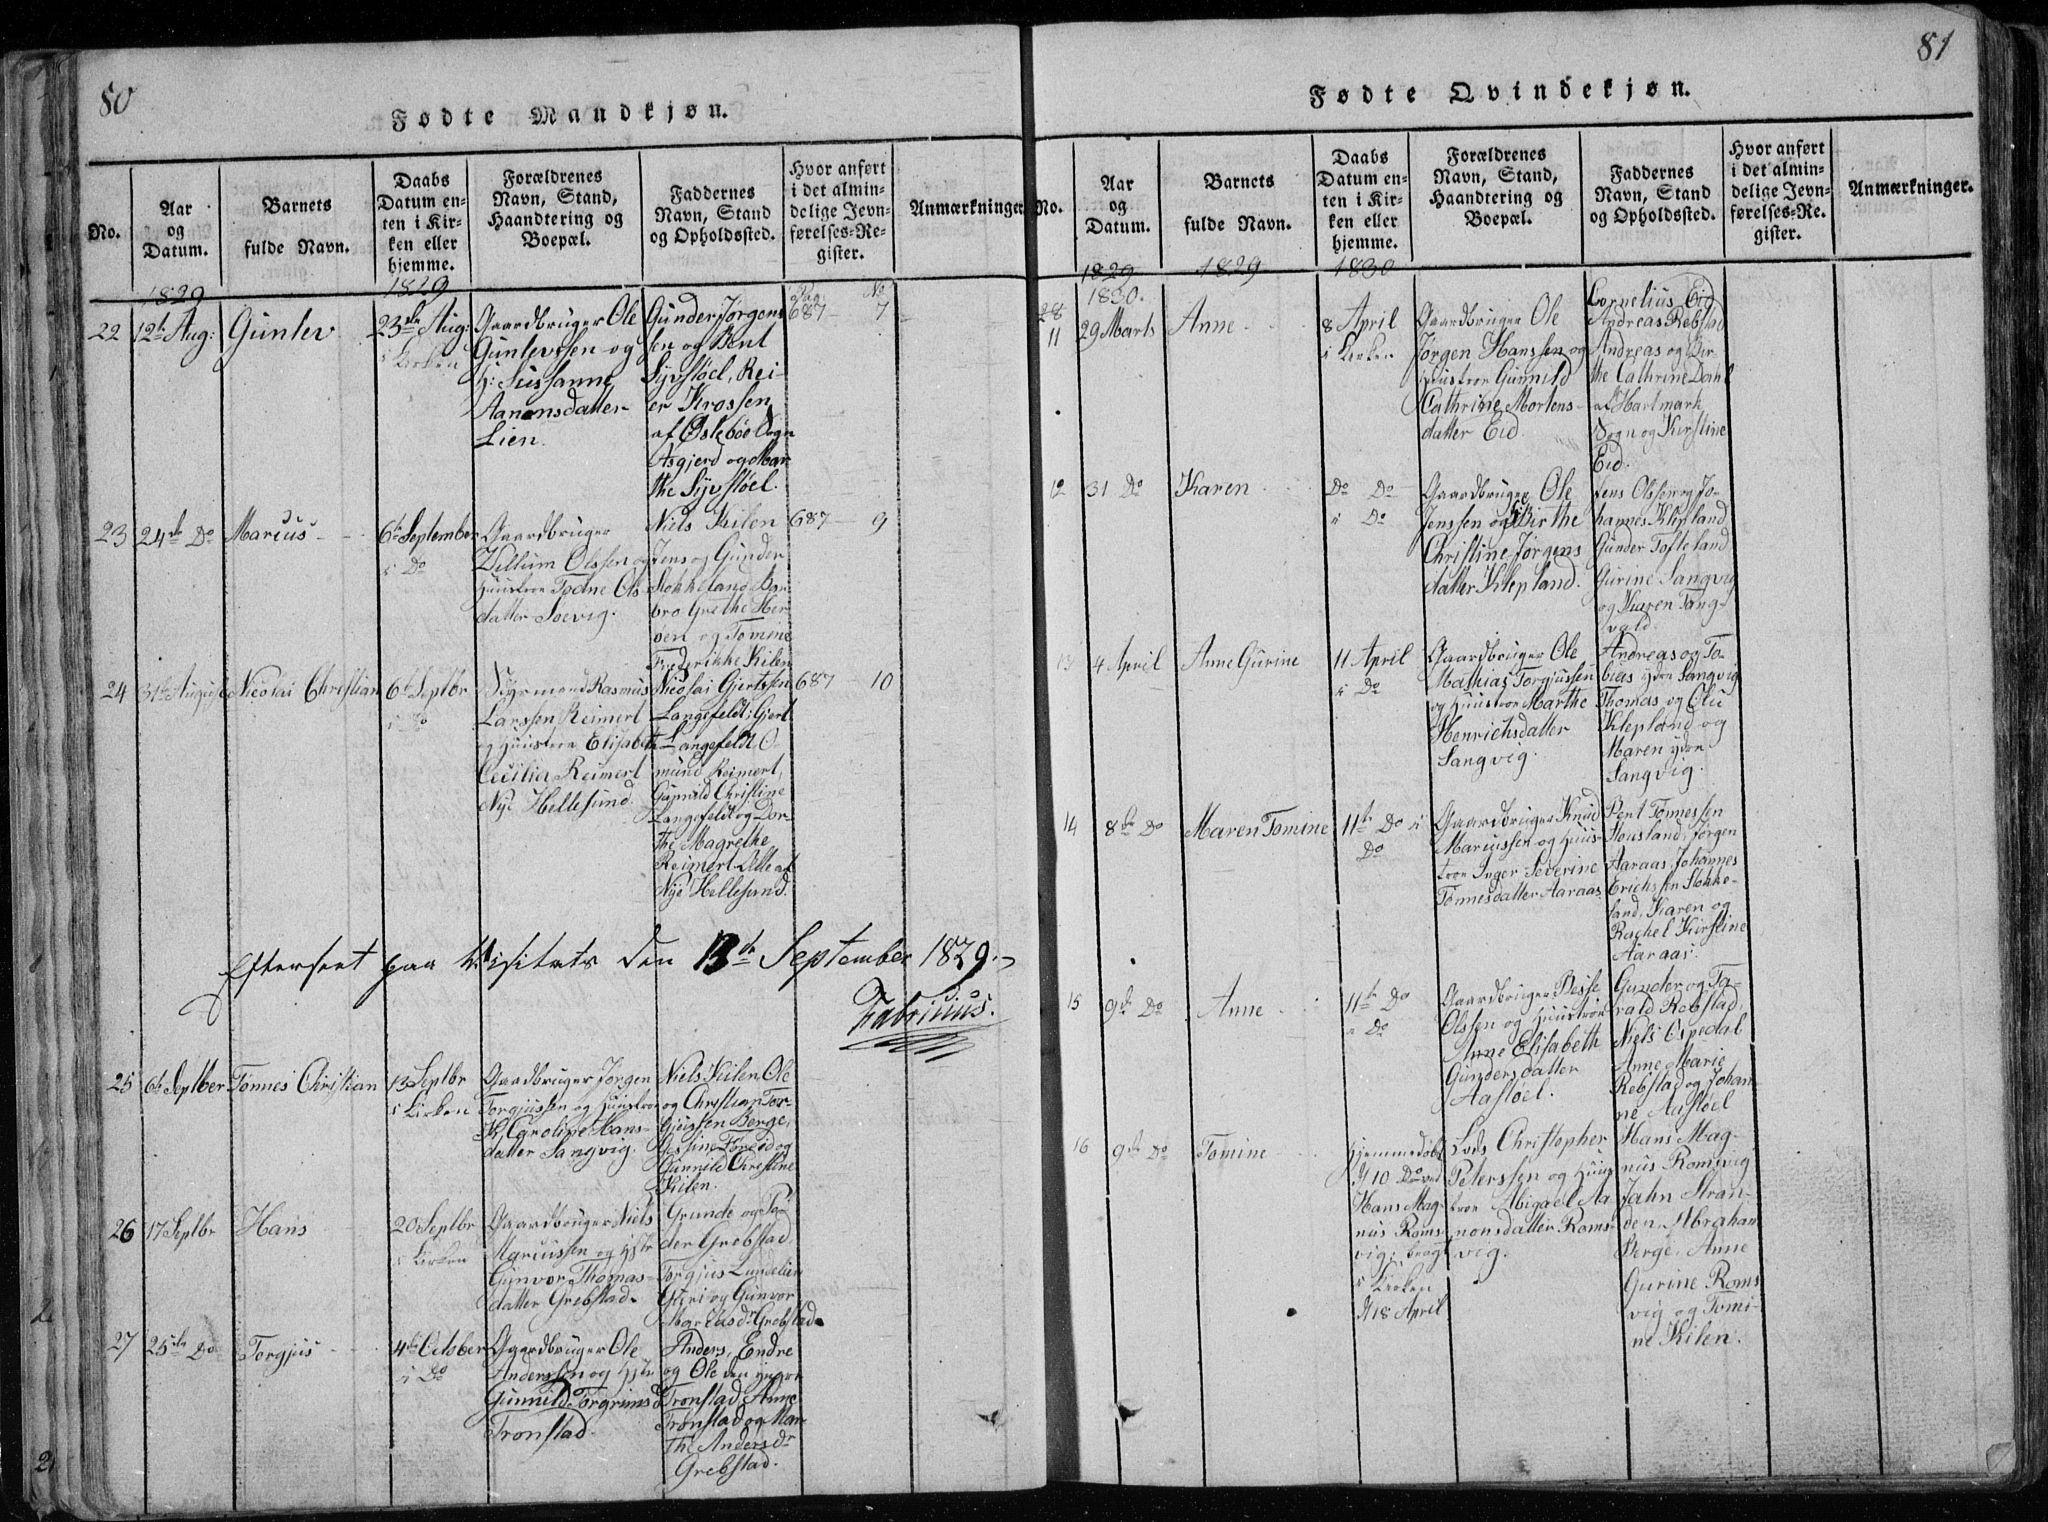 80
Fødte Mandkjøn.
No.
Aar
og
Datum.
Barnets
fulde Navn.
Daabs
Datum en-
ten i Kir-
ken eller
hjemme.
Forældrenes
Navn, Stand,
Haandtering og
Boepæl.
Faddernes
Navn, Stand
og Opholdssted.
Hvor anført
i det almin-
delige Jevn-
førelses-Re-
gister.
Anmærkninger
1829
1829
Pag: No
22
12te Aug:
Gunlev
23de Aug:
i Kirken
Gaardbruger Ole
Gunlevssen og
H: Sussanne
Aanonsdatter
Lien.
Gunder Jørgens
sen og Bent
Syvstøel, Rei-
er Krossen
af Øslebøe Sogn
Asgjerd og Mar
the Syvstøel.
687 7
23
24de Do
Marcus
6te September
i Do
Gaardbruger
Villum Olssen og
Huustroe Todne Ols
datter Soevig.
Niels Kilen
Jens og Gunder
Stokkeland Bar
bro Grethe Her-
øen og Tomine
Frederikke Kilen
687 9
24
31te August
Nicolai Christian
6te Septbr
i Do
Styrmand Rasmus
Larssen Reimert
og Huustroe Elisabeth
Cecilia Reimert
Nye Hellesund.
Nicolai Gjertssen
Langefeldt; Gjert
Langefeldt, O-
mund Reimert,
Gunnild Christine
Langefeldt og Dor-
the Magrethe
Reimert Alle af
Nye Hellesund.
687 10
Efterseet paa Visitats den 13de September 1829.
Fabricius.
25
6te Septber
Tønnes Christian
13 Septbr
i Kirken
Gaardbruger Jørgen
Torgjussen og Huustroe
K. Caroline Hans-
datter Langvig.
Niels Kilen Ole
og Christian Tor-
gjussen Berge,
Gunnild Christine
Kilen.
26
17 Septbr
Hans
20 Septbr
i Kirken
Gaardbruger Niels
Marcussen og Hstr
Gunvor Thomas-
datter Grebstad.
Grunde og Pe-
der Grebstad
Torgjus Lundelien
Guri og Gunvor
Grebstad.
27
25de Do
Torgjus
4de October
i Do
Gaardbruger Ole
Anderssen og Hstr
Gunnild Torgrimsd
Tronstad.
Anders, Endre
og Ole den yngre
Tronstad, Anne
Tronstad og Mar
the Andersdr
Grebstad.
81
Fødte Qvindekjøn.
No.
Aar
og
Datum.
Barnets
fulde Navn.
Daabs
Datum en-
ten i Kir-
ken eller
hjemme.
Forældrenes
Navn, Stand,
Haandtering og
Boepæl.
Faddernes
Navn, Stand
og Opholdssted.
Hvor anført
i det almin-
delige Jevn-
førelses-Re-
gister.
Anmærkninger.
1829
1829
1830
1830.
28
11
29 Marts
Anne
8 April
i Kirken
Gaardbruger Ole
Jørgen Hanssen og
Huustroe Gunnild
Cathrine Mortens-
datter Eid.
Cornelius Eid
Andreas Rebstad
Andreas og Bir-
the Cathrine Dahl
af Hartmark
Sogn og Kirstine
Eid.
12
31 Do
Karen
Do Do
i Do
Gaardbruger Ole
Jenssen og Birthe
Christine Jørgens
datter Klepland.
Jens Olssen og Jo-
hannes Klepland
Gunder Tofteland
Gurine Langvig
og Karen Tang-
vald.
13
4 April
Anne Gurine
11 April
i Do
Gaardbruger Ole
Mathias Torgjussen
og Huustroe Marthe
Henrichsdatter
Langvig.
Andreas og To-
bias ydre Langvig
Thomas og Olu
Klepland og
Maren ydre
Langvig.
14
8de Do
Maren Tomine
11te Do i
Do
Gaardbruger Knud
Marcussen og Huus-
troe Inger Severine
Tønnesdatter Aaraas
Bent Tønnessen
Stusland, Jørgen
Aaraas, Johannes
Erichssen Stokke-
land, Karen og
Rachel Kirstine
Aaraas.
15
9de Do
Anne
11te Do
i Do
Gaardbruger Besse
Olssen og Huustroe
Anne Elisabeth
Gundersdatter
Aastøel.
Gunder og Ta-
rald Rebstad,
Niels Espedal
Anne Marie
Rebstad og Johan
ne Aastøel
16
9de Do
Tomine
Hjemmedøbt
d 10 Do ved
Hans Mag-
nus Roms-
vig; bragt
i Kirken
d 18 April
Lods Christopher
Peterssen og Huus
troe Abigael Aa
nonsdatter Roms-
vig.
Hans Mag-
nus Romsvig
Jahn Stran-
den, Abraham
Berge, Anne
Gurine Roms
vig og Tomi-
ne Kilen.